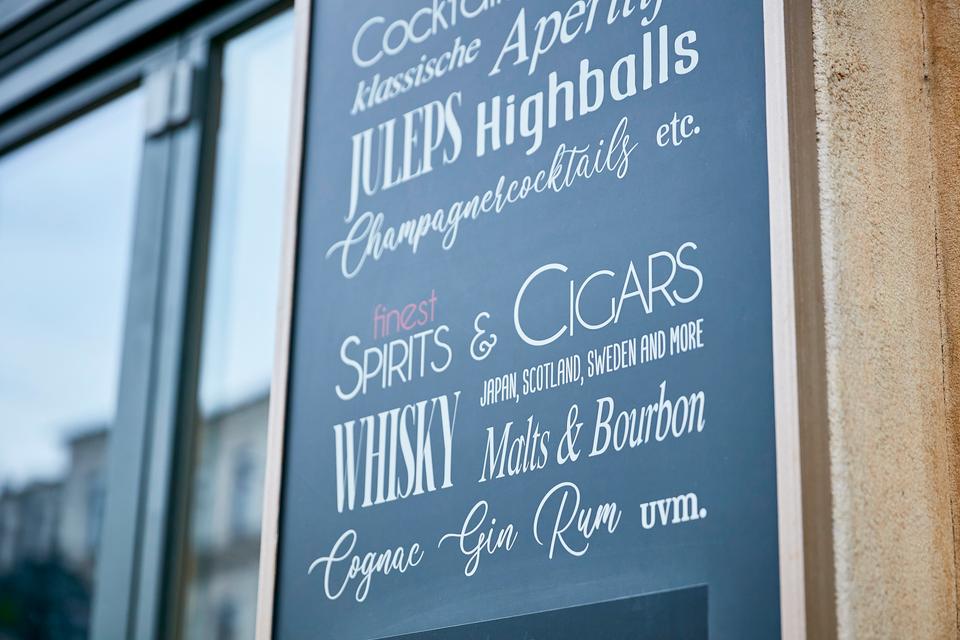 Cocktails
klassische Aperitif
JULEPS Highballs
Champagnercocktails etc.
finest
SPIRITS & CIGARS
JAPAN, SCOTLAND, SWEDEN AND MORE
WHISKY Malts & Bourbon
Cognac Gin Rum uvm.